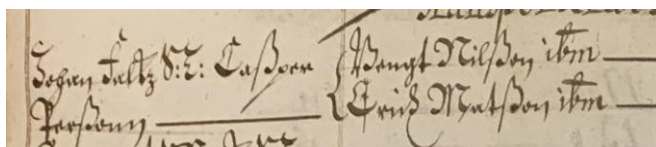 Johan Faltz S: L: Caßper
Perßonn
Bengt Nilßon ibm
Erich Matßon ibm